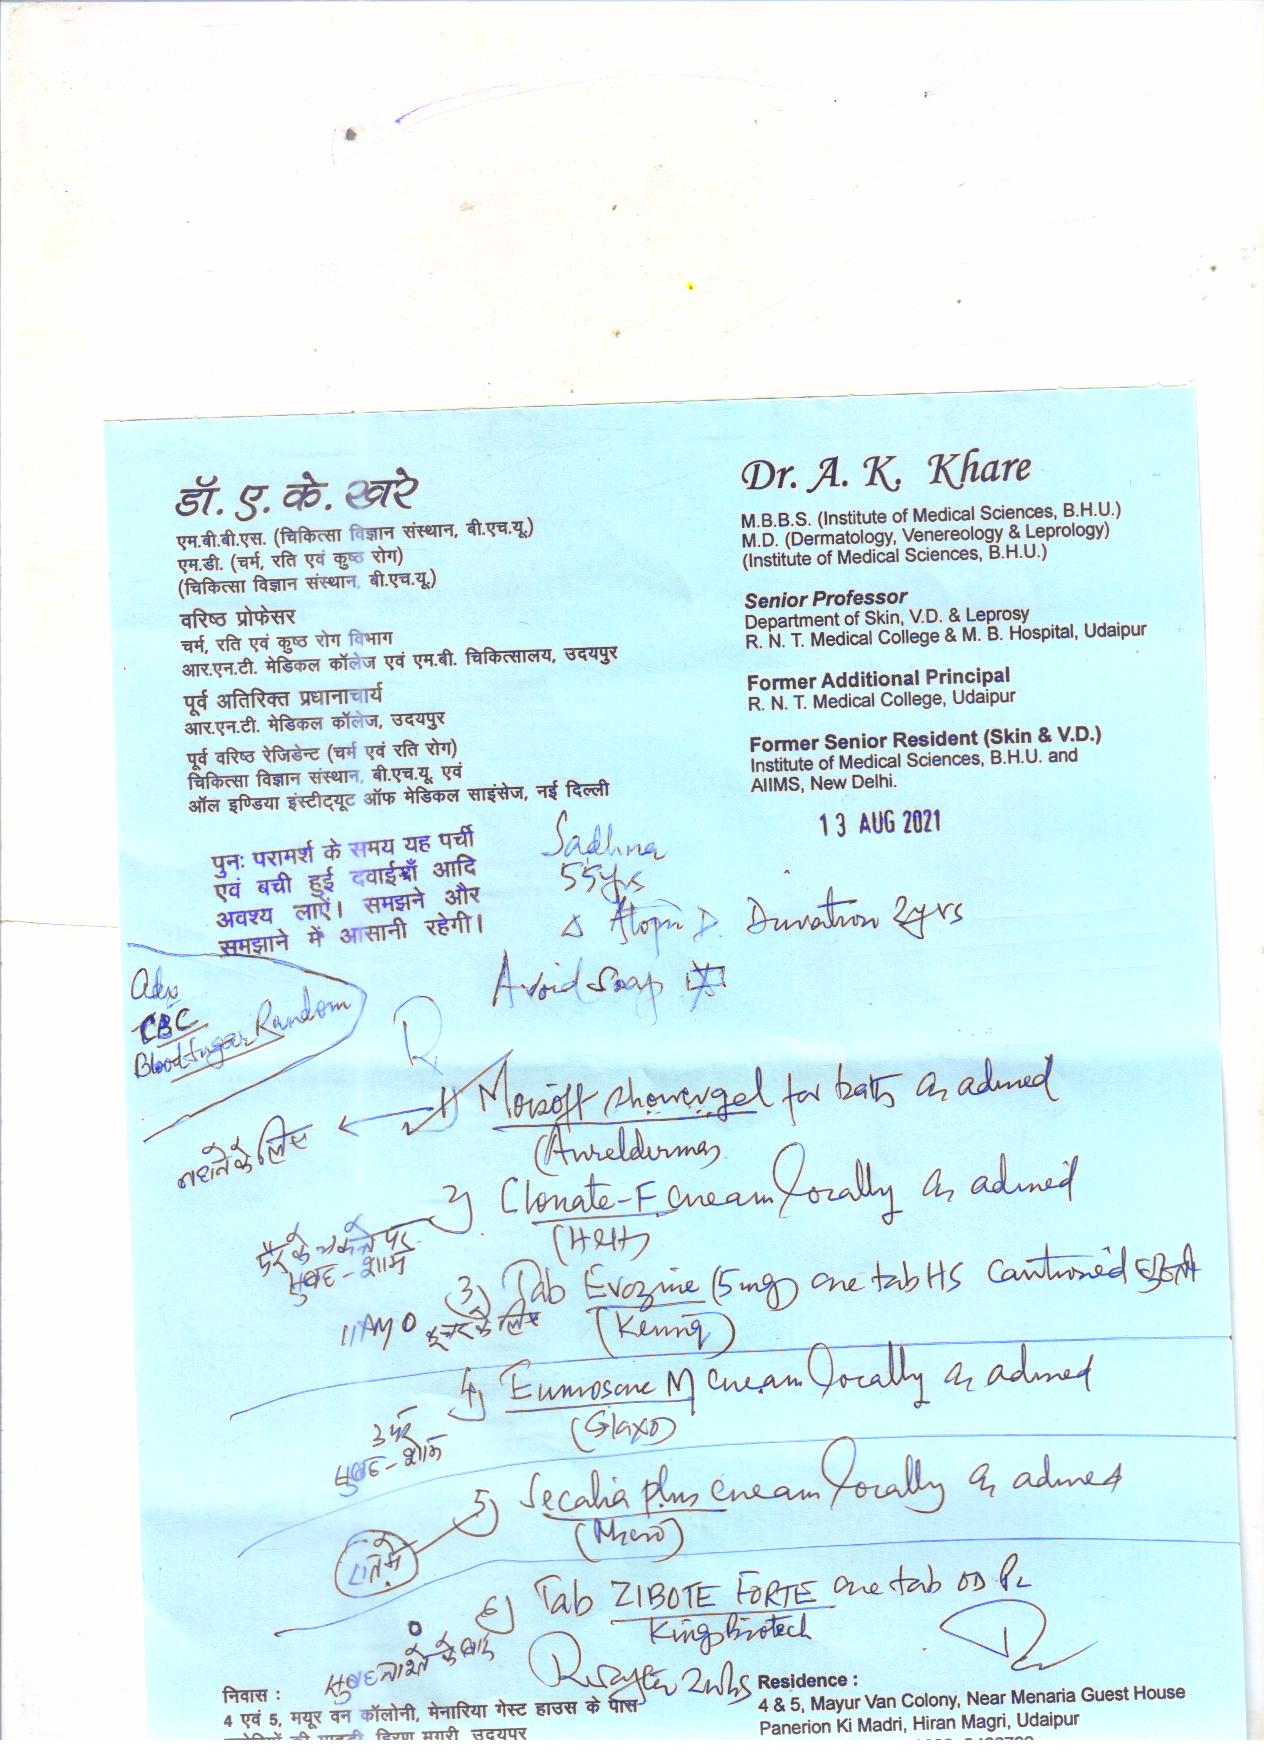 डॉ. ए. के. खरे
एम.बी.बी.एस. (चिकित्सा विज्ञान संस्थान, बी.एच.यू.)
एम.डी. (चर्म, रति एवं कुष्ठ रोग)
(चिकित्सा विज्ञान संस्थान, बी.एच.यू.)
वरिष्ठ प्रोफेसर
चर्म, रति एवं कुष्ठ रोग विभाग
आर.एन.टी. मेडिकल कॉलेज एवं एम.बी. चिकित्सालय, उदयपुर
पूर्व अतिरिक्त प्रधानाचार्य
आर.एन.टी. मेडिकल कॉलेज, उदयपुर
पूर्व वरिष्ठ रेजिडेन्ट (चर्म एवं रति रोग)
चिकित्सा विज्ञान संस्थान, बी.एच.यू. एवं
ऑल इण्डिया इंस्टीट्यूट ऑफ मेडिकल साइंसेज, नई दिल्ली
Dr. A. K. Khare
M.B.B.S. (Institute of Medical Sciences, B.H.U.)
M.D. (Dermatology, Venereology & Leprology)
(Institute of Medical Sciences, B.H.U.)
Senior Professor
Department of Skin, V.D. & Leprosy
R. N. T. Medical College & M. B. Hospital, Udaipur
Former Additional Principal
R. N. T. Medical College, Udaipur
Former Senior Resident (Skin & V.D.)
Institute of Medical Sciences, B.H.U. and
AIIMS, New Delhi.
13 AUG 2021
पुनः परामर्श के समय यह पर्ची
एवं बची हुई दवाईयाँ आदि
अवश्य लाऐं। समझने और
समझाने में आसानी रहेगी।
Sadhna
55yrs
Δ Atopic D. Duration 2yrs
Avoid Soap
Adv
CBC
Blood Sugar Random
R
1) Moisoft showergel for bath as advised
नहाने के लिए
2) Clonate-F cream locally as advised
पैर के चकत्ते पर
सुबह-शाम
3) Tab Evozine (5mg) one tab HS Cautioned
4) Eumosone M cream locally as advised
(Glaxo)
सुबह-शाम
5) Secalia plus cream locally as advised
(Micro)
रात में
6) Tab ZIBOTE FORTE one tab OD PL
Kings Biotech
सुबह नाश्ते के बाद
after 2wks
निवास :
4 एवं 5, मयूर वन कॉलोनी, मेनारिया गेस्ट हाउस के पास
हिरण मगरी, उदयपुर
Residence :
4 & 5, Mayur Van Colony, Near Menaria Guest House
Panerion Ki Madri, Hiran Magri, Udaipur